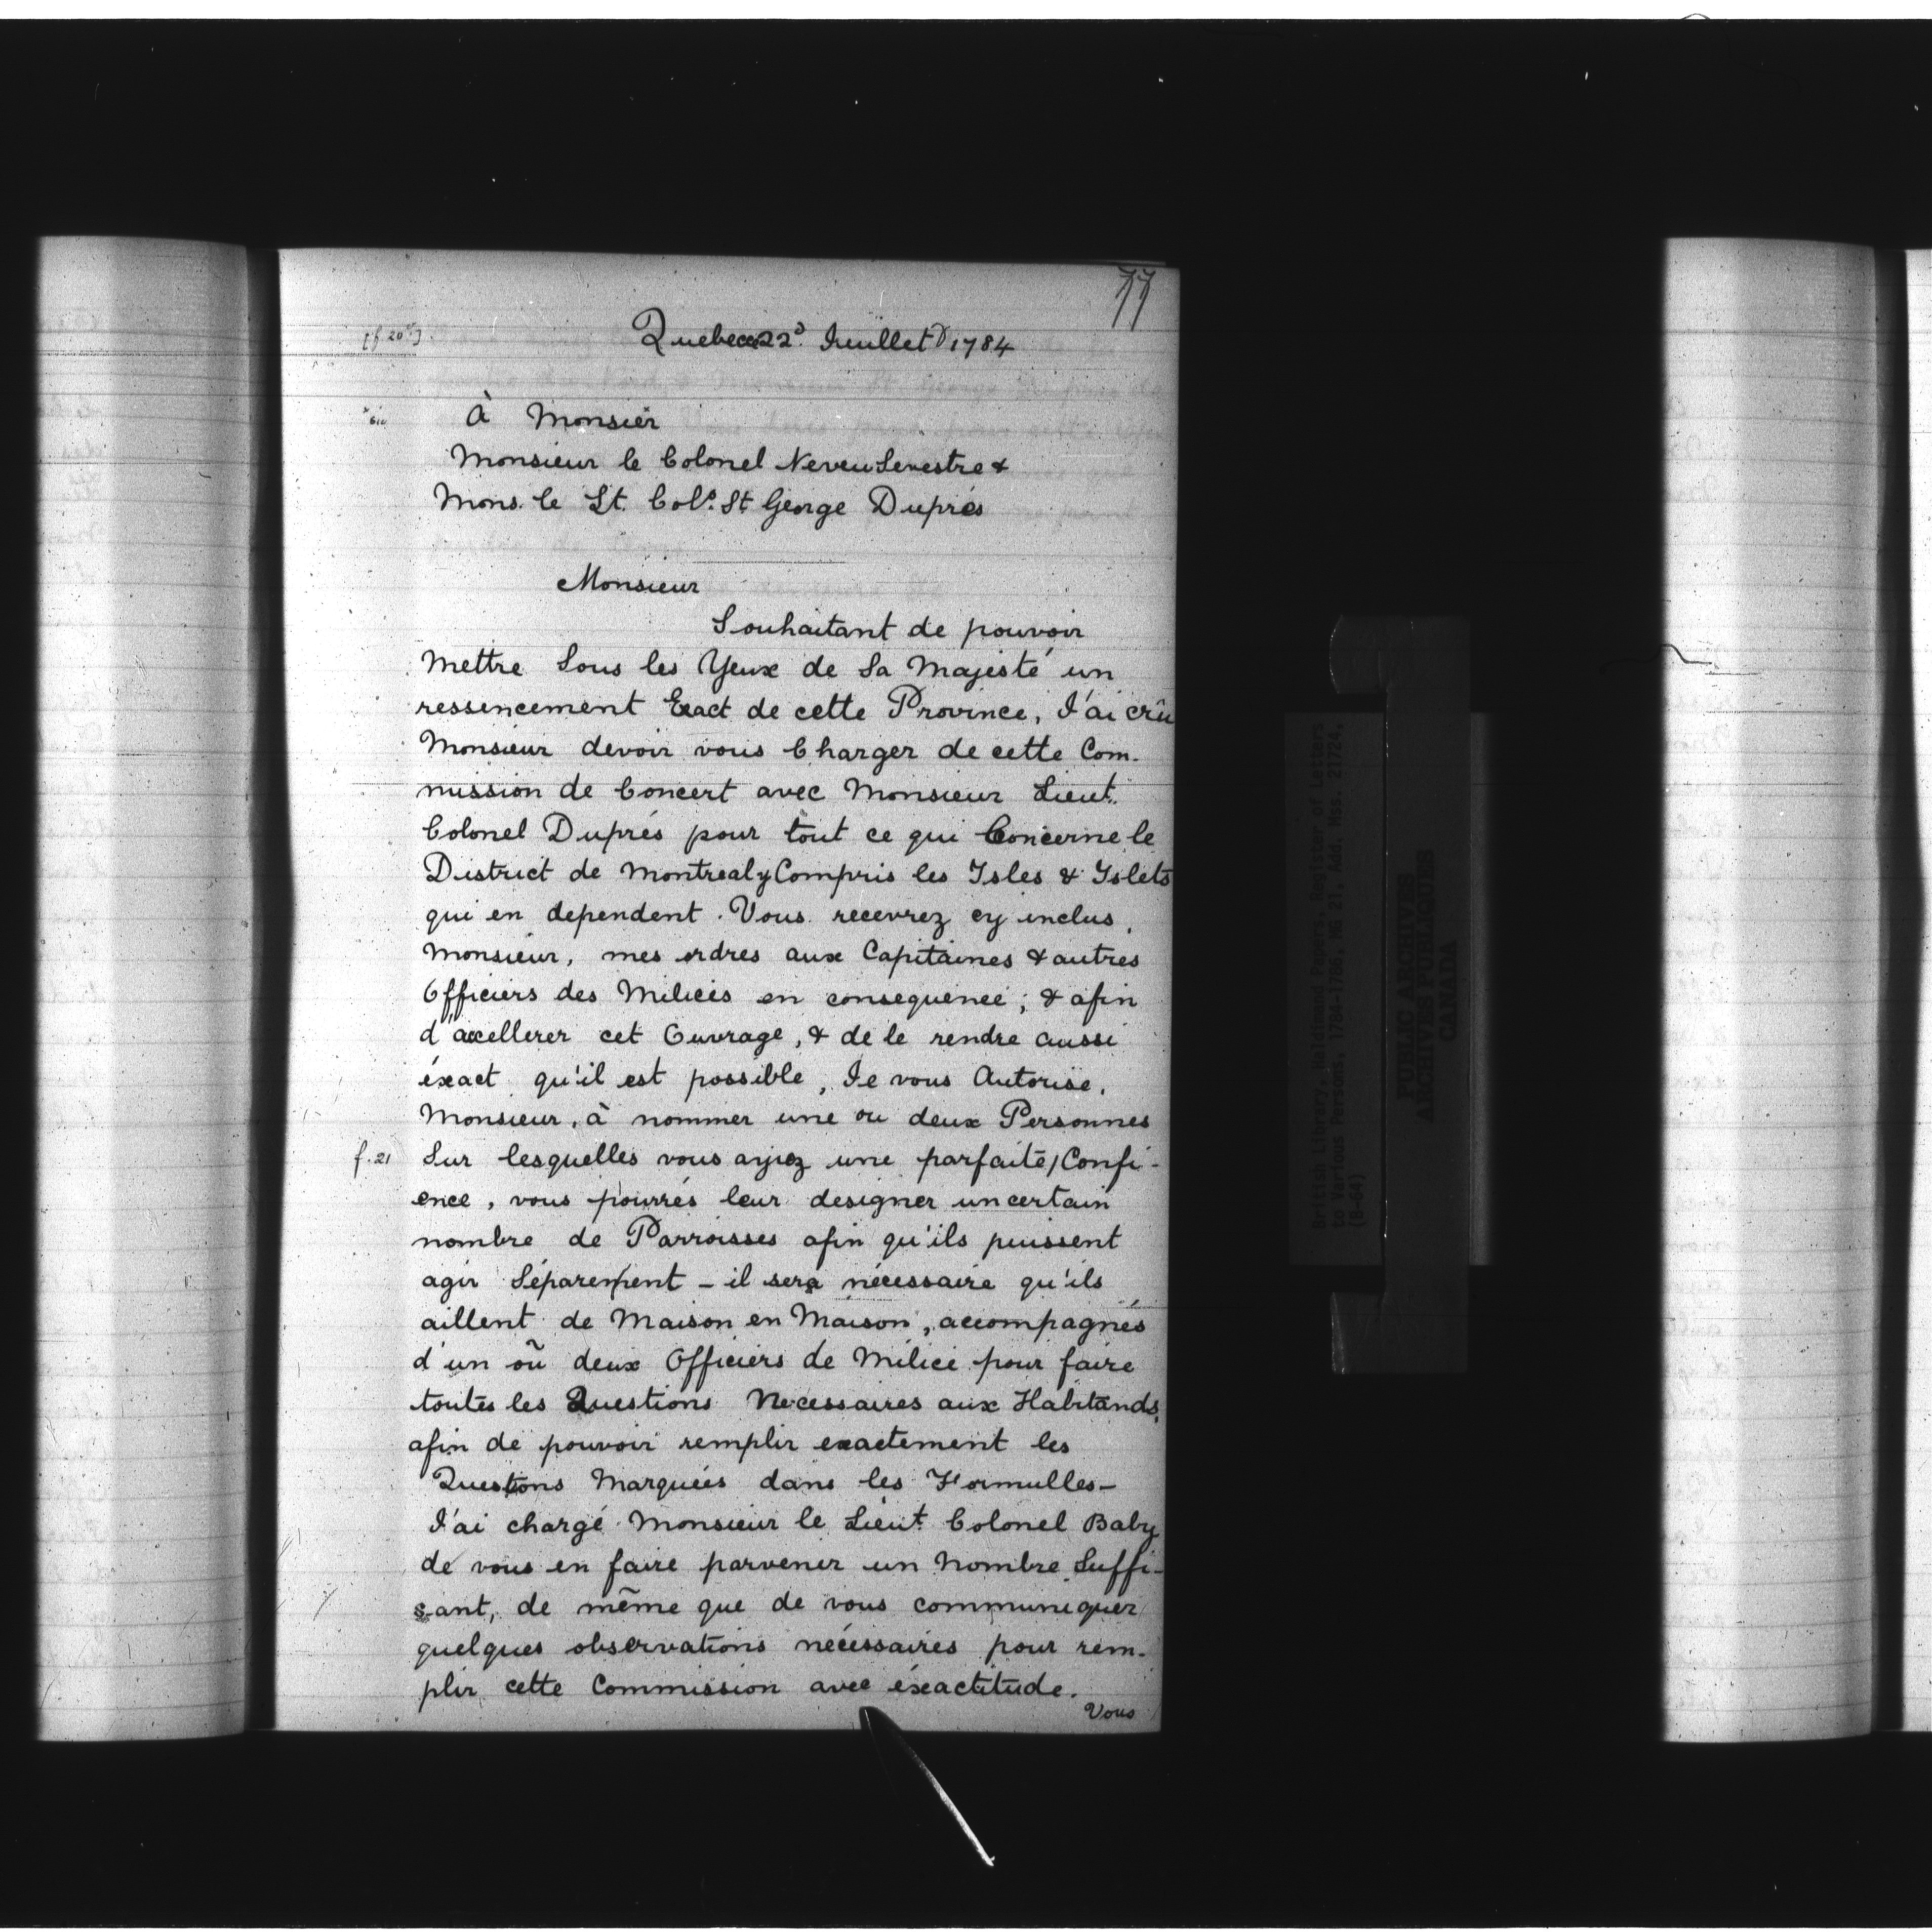 77
[f. 20v]
Quebec 22d Juillet 1784
* sic
À Monsier*
Monsieur le Colonel Neveu Sevestre &
Mons. le Lt. Col. St George Duprés
Monsieur
Souhaitant de pouvoir
Mettre Sous les Yeux de Sa Majesté un
ressencement Exact de cette Province, J'ai crû
Monsieur devoir vous Charger de cette Com-
mission de Concert avec Monsieur Lieut.
Colonel Duprés pour tout ce qui Concerne le
District de Montreal y Compris les Isles & Islets
qui en dependent. Vous recevrez cy inclus,
Monsieur, mes ordres aux Capitaines & autres
Officiers des Milices en consequence; & afin
d'accellerer cet Ouvrage, & de le rendre aussi
éxact qu'il est possible, Je vous Autorise,
Monsieur, à nommer une ou deux Personnes
f. 21
Sur lesquelles vous ayiez une parfaite/Confi-
ence, vous pourrés leur designer un certain
nombre de Parroisses afin qu'ils puissent
agir Séparement - il sera nécessaire qu'ils
aillent de Maison en Maison, accompagnés
d'un où deux Officiers de Milice pour faire
toutes les Questions Necessaires aux Habitands,
afin de pouvoir remplir exactement les
Questions Marquées dans les Formulles-
J'ai chargé Monsieur le Lieut. Colonel Baby
de vous en faire parvener un Nombre Suffi-
sant, de même que de vous communiquer
quelques observations nécessaires pour rem-
plir cette Commission avec éxactitude.
Vous
British Library, Haldimand Papers, Register of Letters
to Various Persons, 1784-1786, MG 21, Add. Mss. 21724,
(B-64)
PUBLIC ARCHIVES
ARCHIVES PUBLIQUES
CANADA